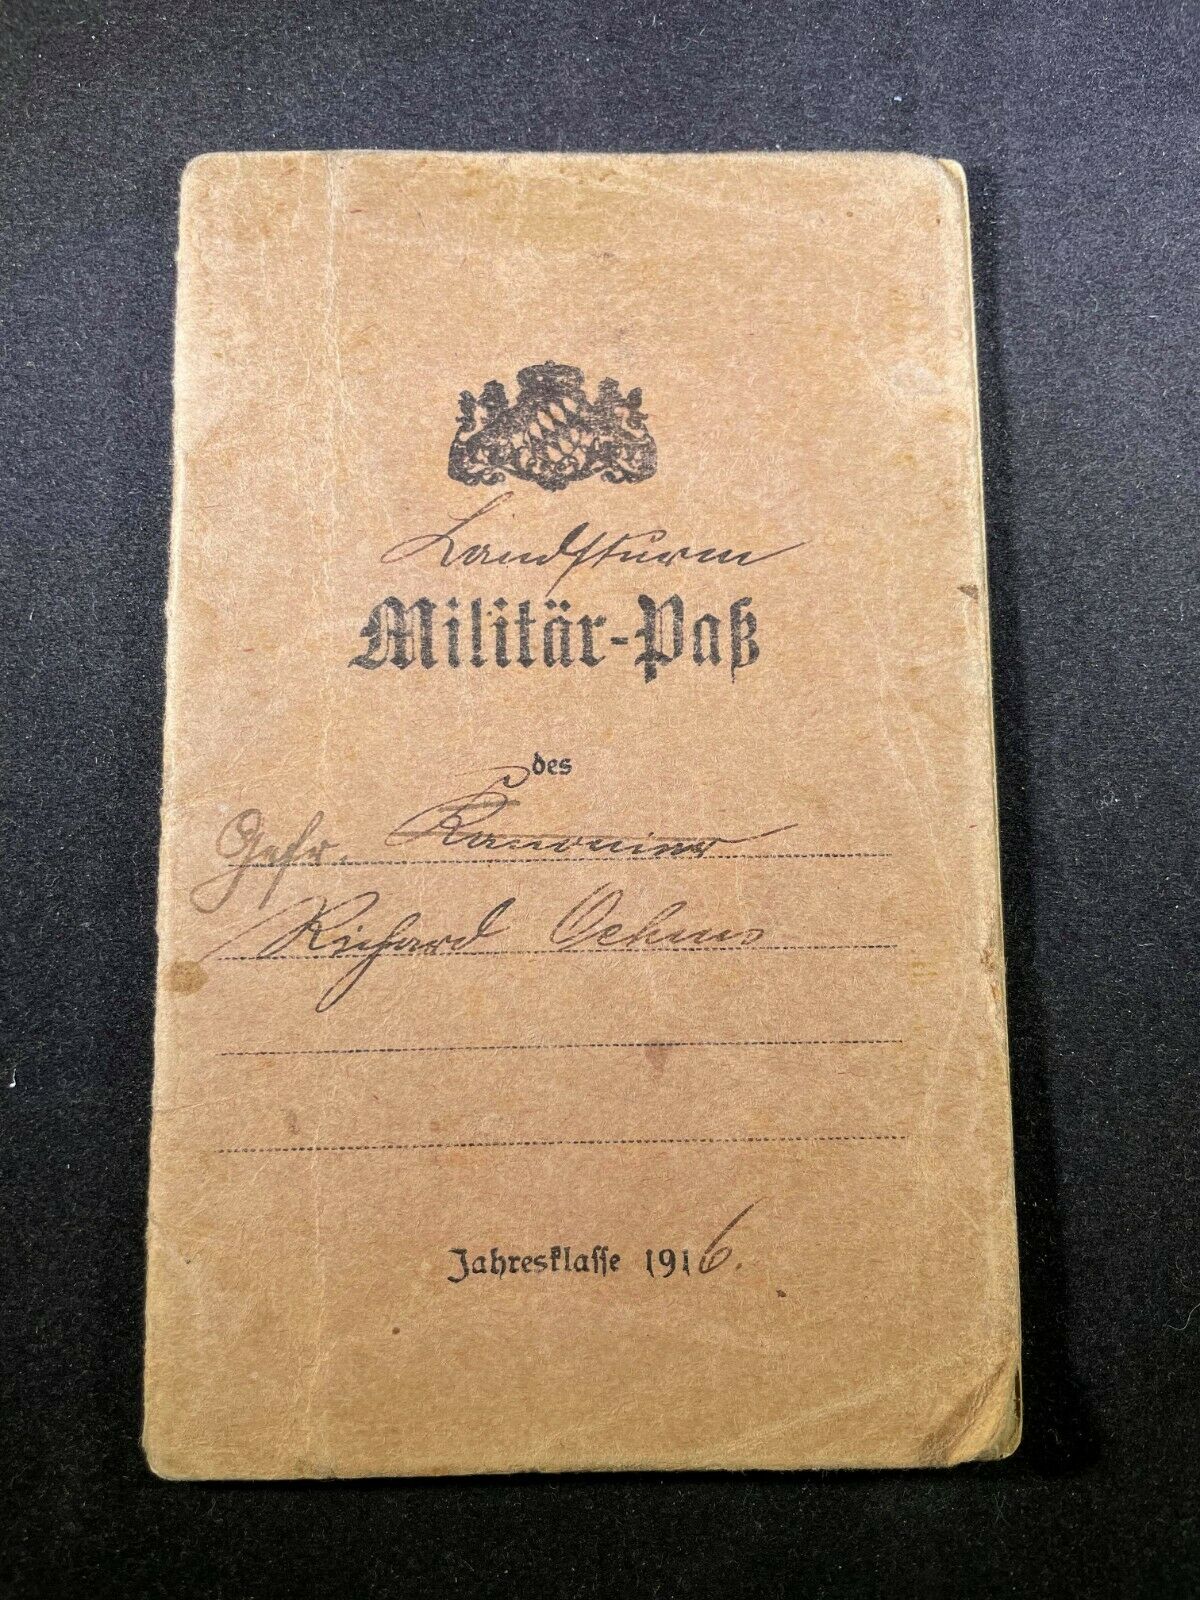 Landsturm
Militär-Paß
des
Gefr. Kanonier
Richard
Jahresklasse 1916.